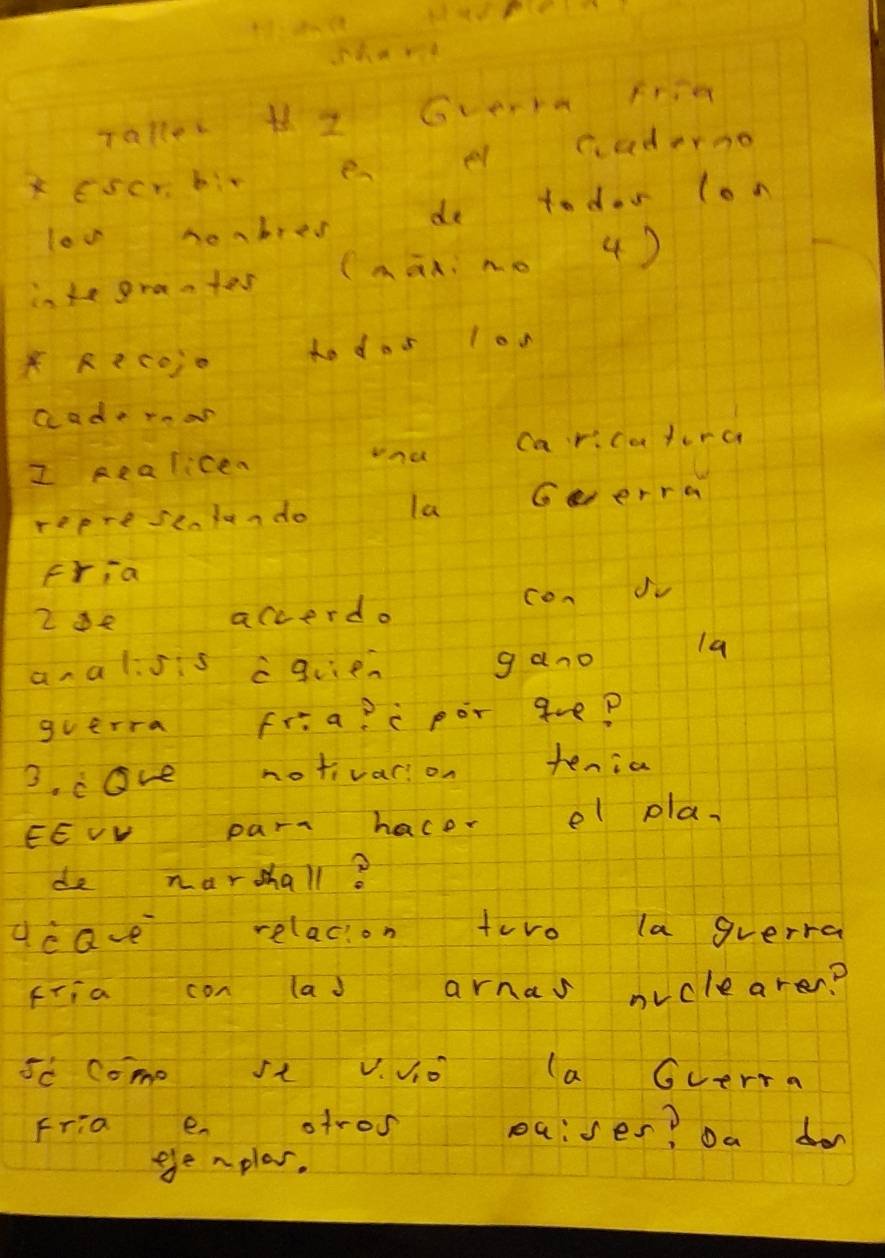 share
Taller # 1 Guerra Fría
* Escribir en el cuaderno
los nombres de todos los
integrantes (máximo 4)
* Recojo todos los
cuadernos
1 Realicen una caricatura
representando la Guerra
Fría
2 De acuerdo con su
analisis ¿quién gano la
guerra fria? ¿por que?
3. ¿Que motivacion tenia
EEUU para hacer el plan
de marshall?
4 ¿Qué relacion tuvo la guerra
fría con las armas nucleares?
5 ¿Cómo se vivió la Guerra
Fría en otros paises? Da dos
ejemplos.